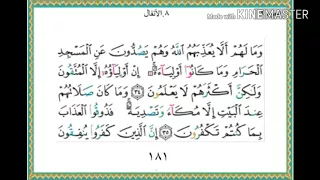 ٨ـ الأنفال
Made with KINEMASTER
وَمَا لَهُمْ أَلَّا يُعَذِّبَهُمُ اللَّهُ وَهُمْ يَصُدُّونَ عَنِ الْمَسْجِدِ
الْحَرَامِ وَمَا كَانُوا أَوْلِيَاءَهُ إِنْ أَوْلِيَاؤُهُ إِلَّا الْمُتَّقُونَ
وَلَٰكِنَّ أَكْثَرَهُمْ لَا يَعْلَمُونَ ٣٤ وَمَا كَانَ صَلَاتُهُمْ
عِندَ الْبَيْتِ إِلَّا مُكَاءً وَتَصْدِيَةً فَذُوقُوا الْعَذَابَ
بِمَا كُنتُمْ تَكْفُرُونَ ٣٥ إِنَّ الَّذِينَ كَفَرُوا يُنفِقُونَ
١٨١